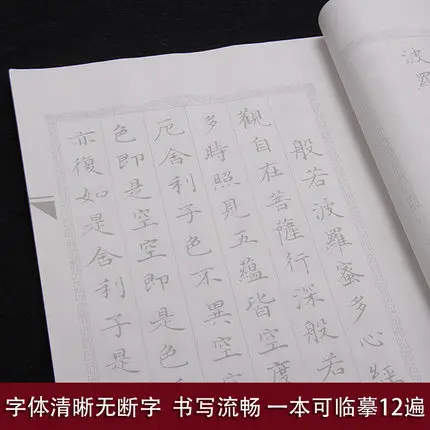 波羅
般若波羅蜜多心經
觀自在菩薩行深般若
多時照見五蘊皆空度
厄舍利子色不異空
色即是空空即是色
亦復如是舍利子是
字体清晰无断字 书写流畅 一本可临摹12遍